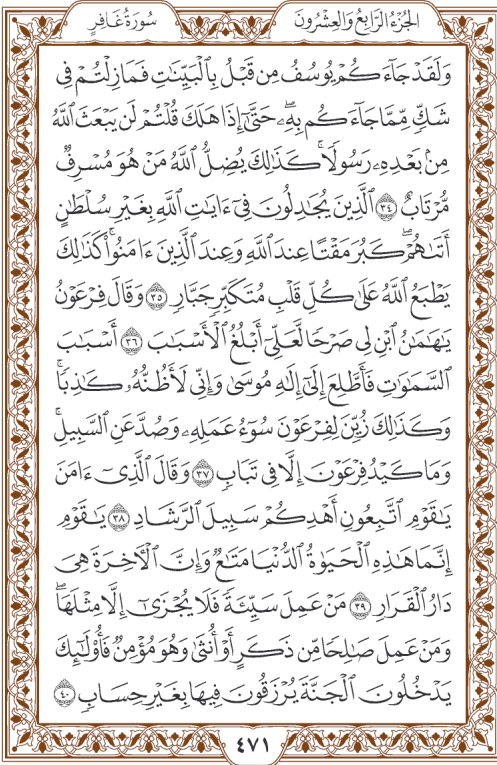 الجُزْءُ الرَّابِعُ وَالعِشْرُونَ سُورَةُ غَافِرٍ
وَلَقَدْ جَآءَكُمْ يُوسُفُ مِن قَبْلُ بِٱلْبَيِّنَٰتِ فَمَا زِلْتُمْ فِى
شَكٍّ مِّمَّا جَآءَكُم بِهِۦۖ حَتَّىٰٓ إِذَا هَلَكَ قُلْتُمْ لَن يَبْعَثَ ٱللَّهُ
مِنۢ بَعْدِهِۦ رَسُولًاۚ كَذَٰلِكَ يُضِلُّ ٱللَّهُ مَنْ هُوَ مُسْرِفٌ
مُّرْتَابٌ ٣٤ ٱلَّذِينَ يُجَٰدِلُونَ فِىٓ ءَايَٰتِ ٱللَّهِ بِغَيْرِ سُلْطَٰنٍ
أَتَىٰهُمْۖ كَبُرَ مَقْتًا عِندَ ٱللَّهِ وَعِندَ ٱلَّذِينَ ءَامَنُوا۟ۚ كَذَٰلِكَ
يَطْبَعُ ٱللَّهُ عَلَىٰ كُلِّ قَلْبِ مُتَكَبِّرٍ جَبَّارٍ ٣٥ وَقَالَ فِرْعَوْنُ
يَٰهَٰمَٰنُ ٱبْنِ لِى صَرْحًا لَّعَلِّىٓ أَبْلُغُ ٱلْأَسْبَٰبَ ٣٦ أَسْبَٰبَ
ٱلسَّمَٰوَٰتِ فَأَطَّلِعَ إِلَىٰٓ إِلَٰهِ مُوسَىٰ وَإِنِّى لَأَظُنُّهُۥ كَٰذِبًاۚ
وَكَذَٰلِكَ زُيِّنَ لِفِرْعَوْنَ سُوٓءُ عَمَلِهِۦ وَصُدَّ عَنِ ٱلسَّبِيلِۚ
وَمَا كَيْدُ فِرْعَوْنَ إِلَّا فِى تَبَابٍ ٣٧ وَقَالَ ٱلَّذِىٓ ءَامَنَ
يَٰقَوْمِ ٱتَّبِعُونِ أَهْدِكُمْ سَبِيلَ ٱلرَّشَادِ ٣٨ يَٰقَوْمِ
إِنَّمَا هَٰذِهِ ٱلْحَيَوٰةُ ٱلدُّنْيَا مَتَٰعٌ وَإِنَّ ٱلْءَاخِرَةَ هِىَ
دَارُ ٱلْقَرَارِ ٣٩ مَنْ عَمِلَ سَيِّئَةً فَلَا يُجْزَىٰٓ إِلَّا مِثْلَهَاۖ
وَمَنْ عَمِلَ صَٰلِحًا مِّن ذَكَرٍ أَوْ أُنثَىٰ وَهُوَ مُؤْمِنٌ فَأُو۟لَٰٓئِكَ
يَدْخُلُونَ ٱلْجَنَّةَ يُرْزَقُونَ فِيهَا بِغَيْرِ حِسَابٍ ٤٠
٤٧١